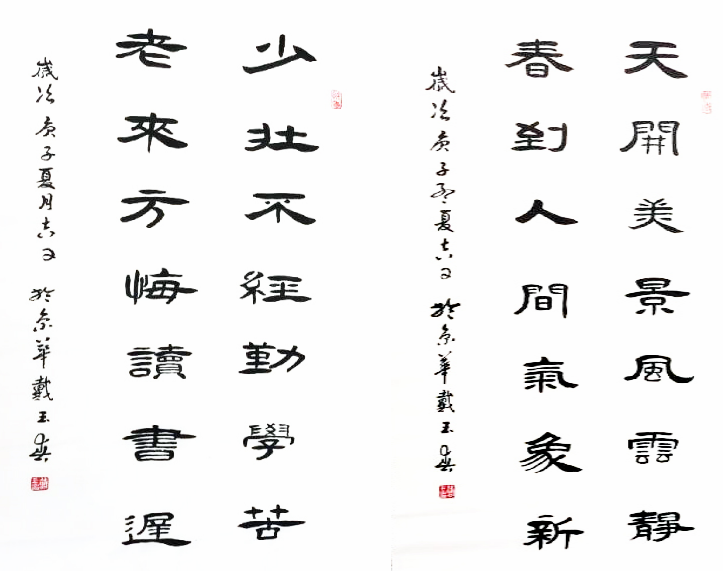 天開美景風雲靜
春到人間氣象新
歲次庚子孟夏吉日於京華戴玉
少壯不經勤學苦
老來方悔讀書遲
歲次庚子夏月吉日於京華戴玉